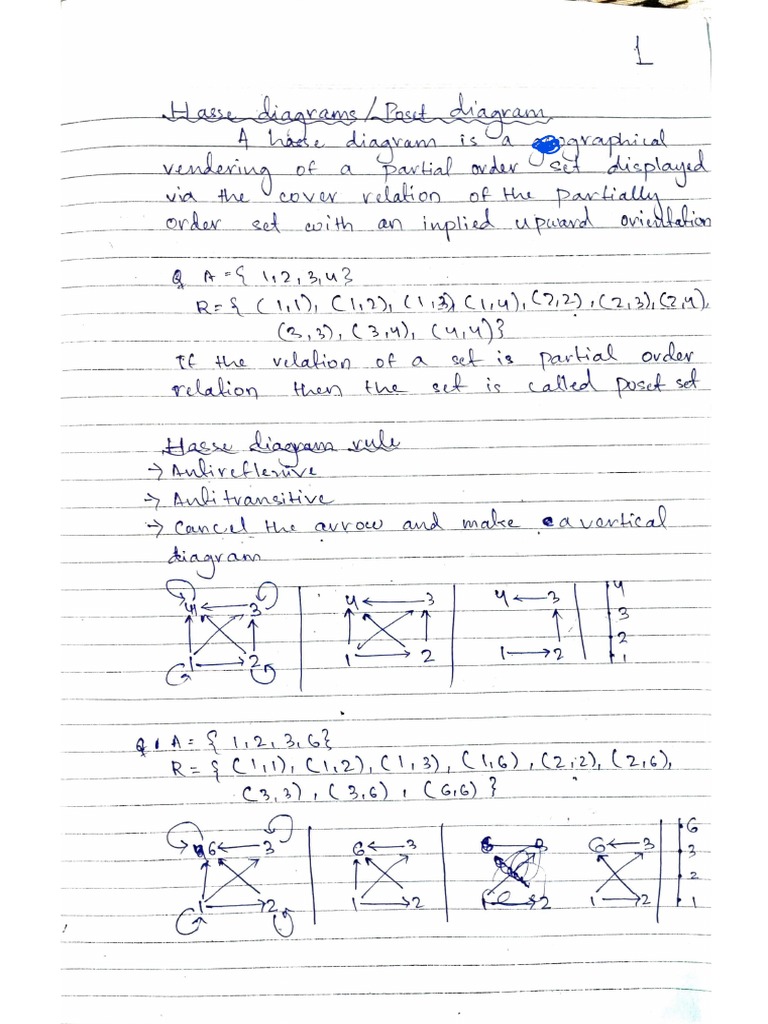 1
Hasse diagrams / Poset diagram
A hasse diagram is a graphical
rendering of a partial order set displayed
via the cover relation of the partially
order set with an inplied upward orientation
Q A = { 1,2,3,4}
R = { (1,1), (1,2), (1,3) (1,4), (2,2), (2,3), (2,4),
(3,3), (3,4), (4,4)}
If the relation of a set is partial order
relation then the set is called poset set
Hasse diagram rule
→ Antireflexive
→ Antitransitive
→ Cancel the arrow and make a vertical
diagram
4 3 4 3 4 3 4
3
2
1 2 1 2 1 2 1
Q1 A = { 1,2,3,6}
R = { (1,1), (1,2), (1,3), (1,6), (2,2), (2,6),
(3,3), (3,6), (6,6) }
6 3 6 3 6 3 6
3
2
1 2 1 2 2 1 2 1